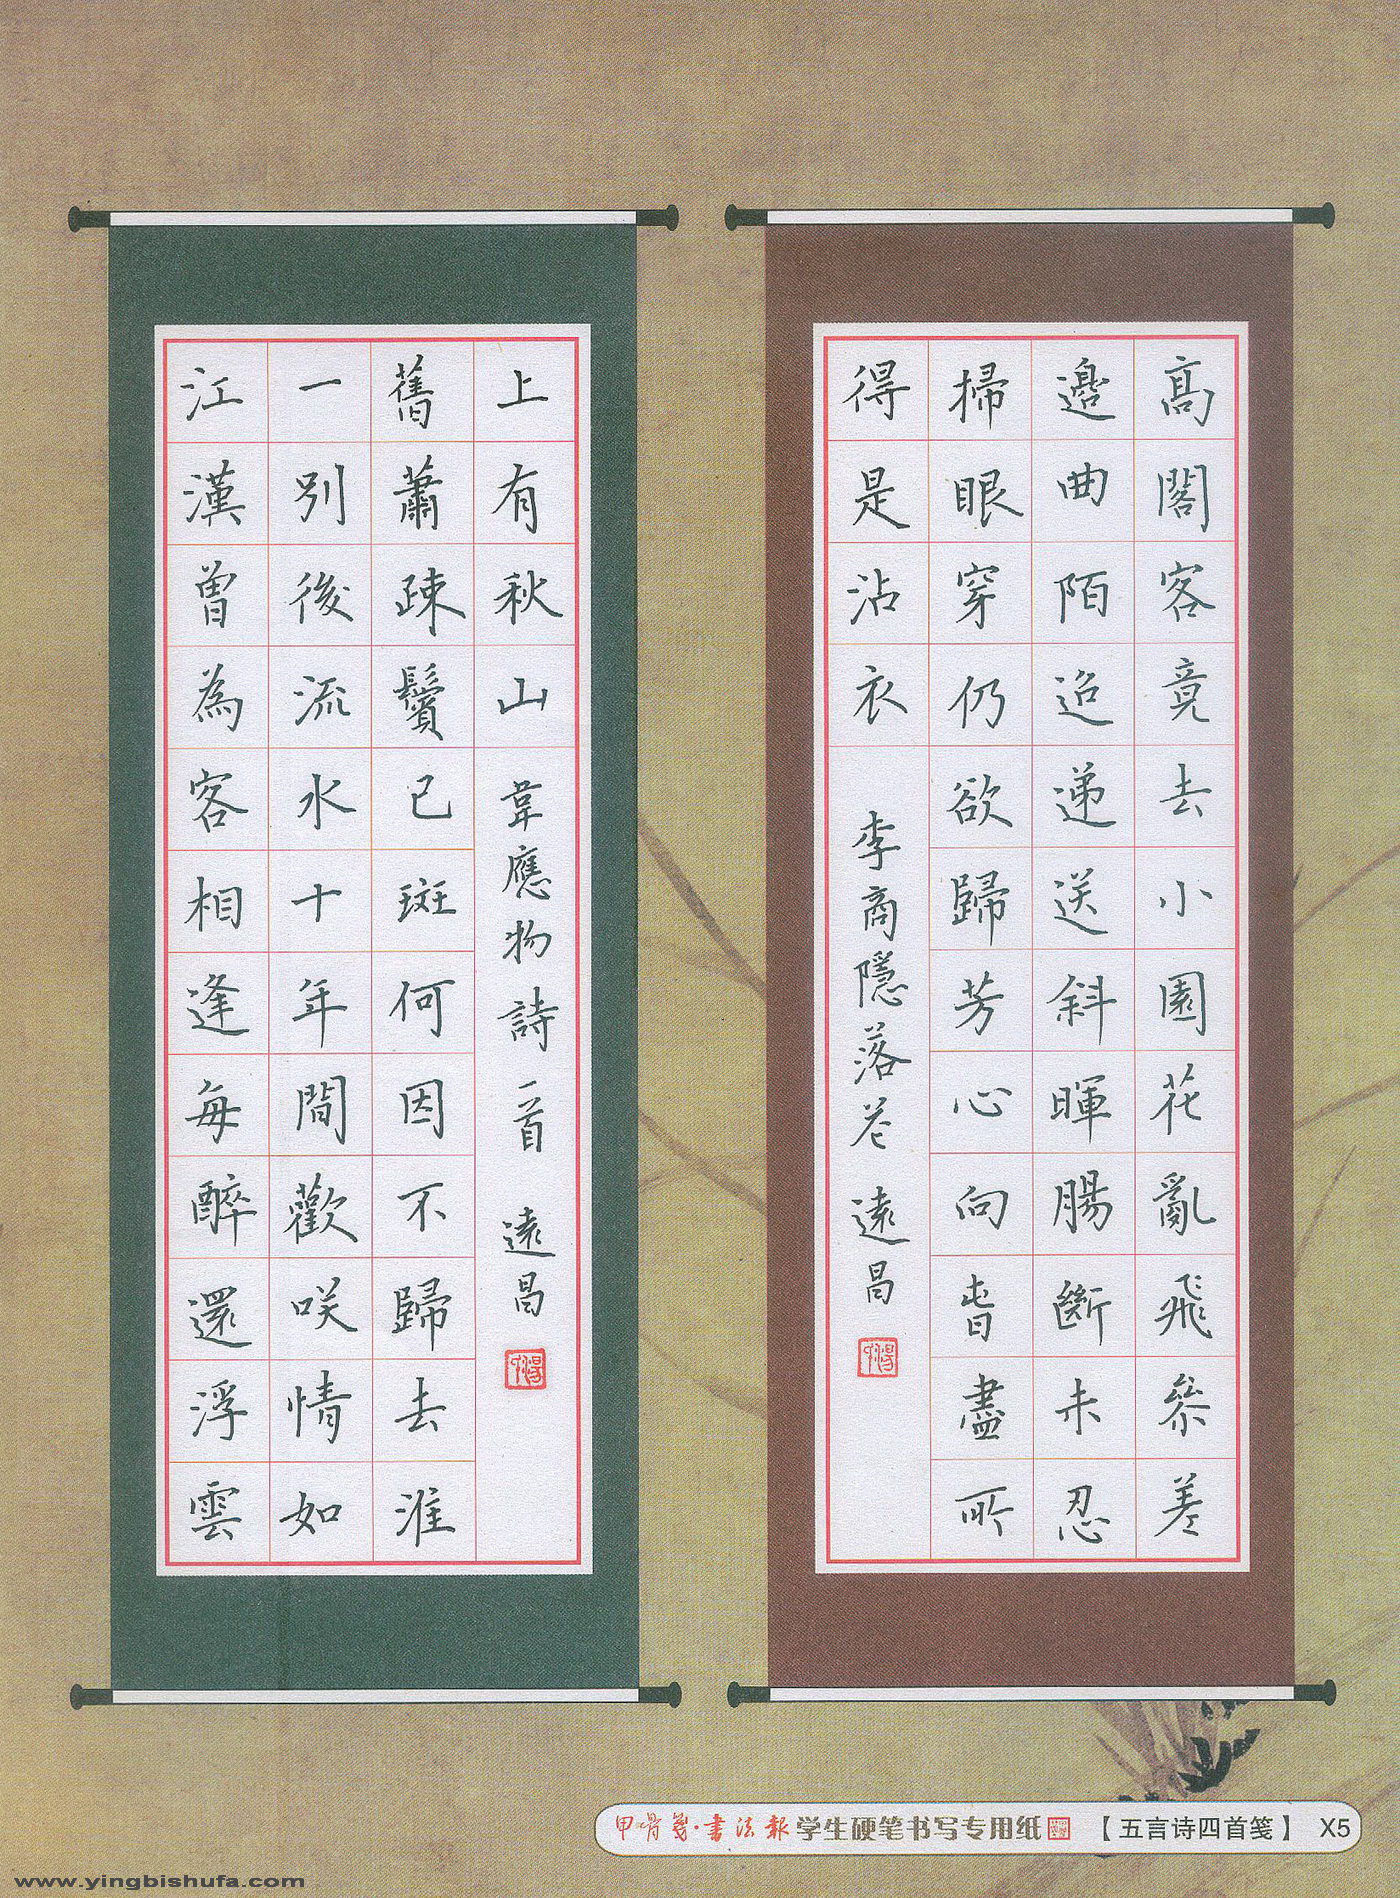 高閣客竟去小園花亂飛參差
邊曲陌迢遞送斜暉腸斷未忍
掃眼穿仍欲歸芳心向旾盡所
得是沾衣 李商隱落花 遠昌
江漢曾為客相逢每醉還浮雲
一別後流水十年間歡咲情如
舊蕭疎鬢已斑何因不歸去淮
上有秋山 韋應物詩一首 遠昌
甲骨笺·書法報 学生硬笔书写专用纸 【五言诗四首笺】 X5
www.yingbishufa.com